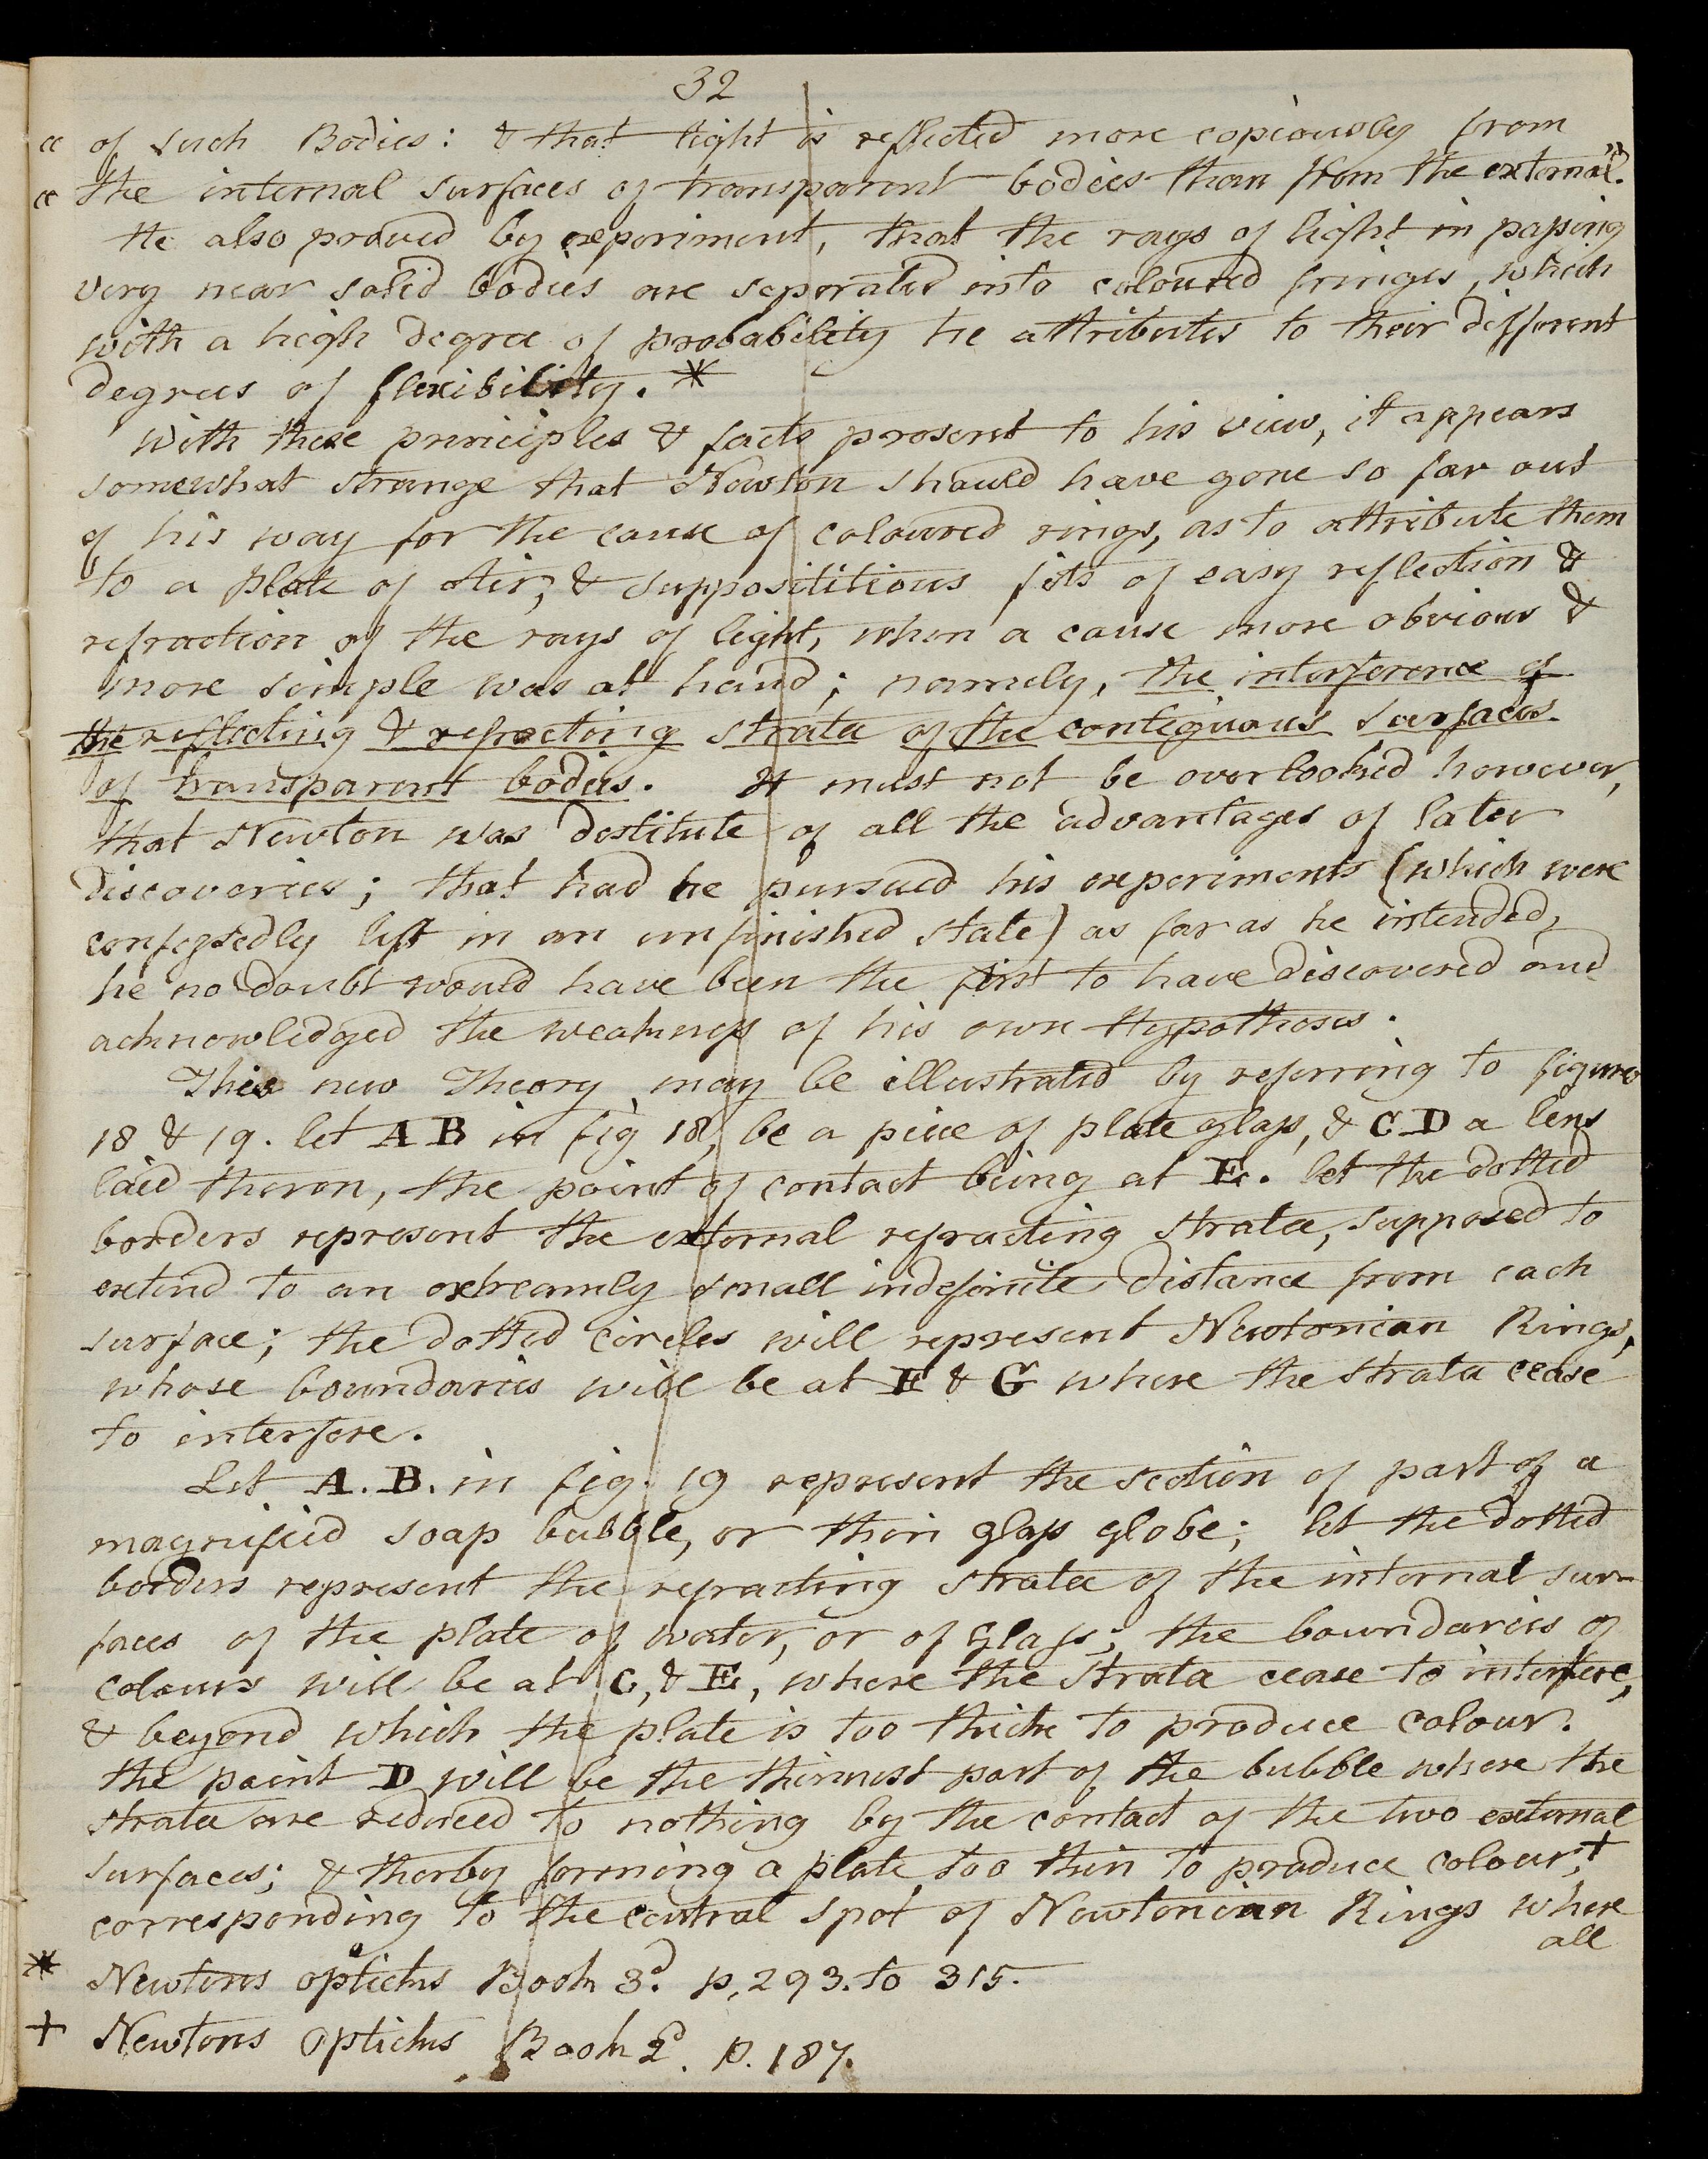 32
" of such Bodies: & that light is reflected more copiously from
" the internal surfaces of transparent bodies than from the external."
He also proved by experiment, that the rays of light in passing
very near solid bodies are seperated into coloured fringes, which
with a high degree of probability he attributes to their different
degrees of flexibility. *
With these principles & facts present to his view, it appears
somewhat strange that Newton should have gone so far out
of his way for the cause of coloured rings, as to attribute them
to a plate of Air; & supposititious fits of easy reflection &
refraction of the rays of light, when a cause more obvious &
more simple was at hand; namely, the interference of
the reflecting & refracting strata of the contiguous surfaces
of transparent bodies. It must not be overlooked however,
that Newton was destitute of all the advantages of later
discoveries; that had he pursued his experiments (which were
confessedly left in an unfinished state) as far as he intended,
he no doubt would have been the first to have discovered and
acknowledged the weakness of his own Hypothesis.
This new Theory may be illustrated by referring to figures
18 & 19. let A B in fig 18, be a piece of plate glass, & C D a lens
laid theron, the point of contact being at E. let the dotted
borders represent the external refracting strata, supposed to
extend to an extreamly small indefinite distance from each
surface; the dotted circles will represent Newtonian Rings,
whose boundaries will be at F & G where the strata cease
to interfere.
Let A. B. in fig. 19 represent the section of part of a
magnified soap bubble, or thin glass globe; let the dotted
borders represent the refracting strata of the internal sur-
faces of the plate of water, or of Glass; the boundaries of
colours will be at C, & E, where the strata cease to interfere,
& beyond which the plate is too thick to produce colour.
the point D will be the thinnest part of the bubble where the
strata are reduced to nothing by the contact of the two external
surfaces; & therby forming a plate too thin to produce colour,+
corresponding to the central spot of Newtonian Rings where
all
* Newtons opticks Book 3d. p, 293. to 315.
+ Newtons Opticks Book 2d. p. 187.